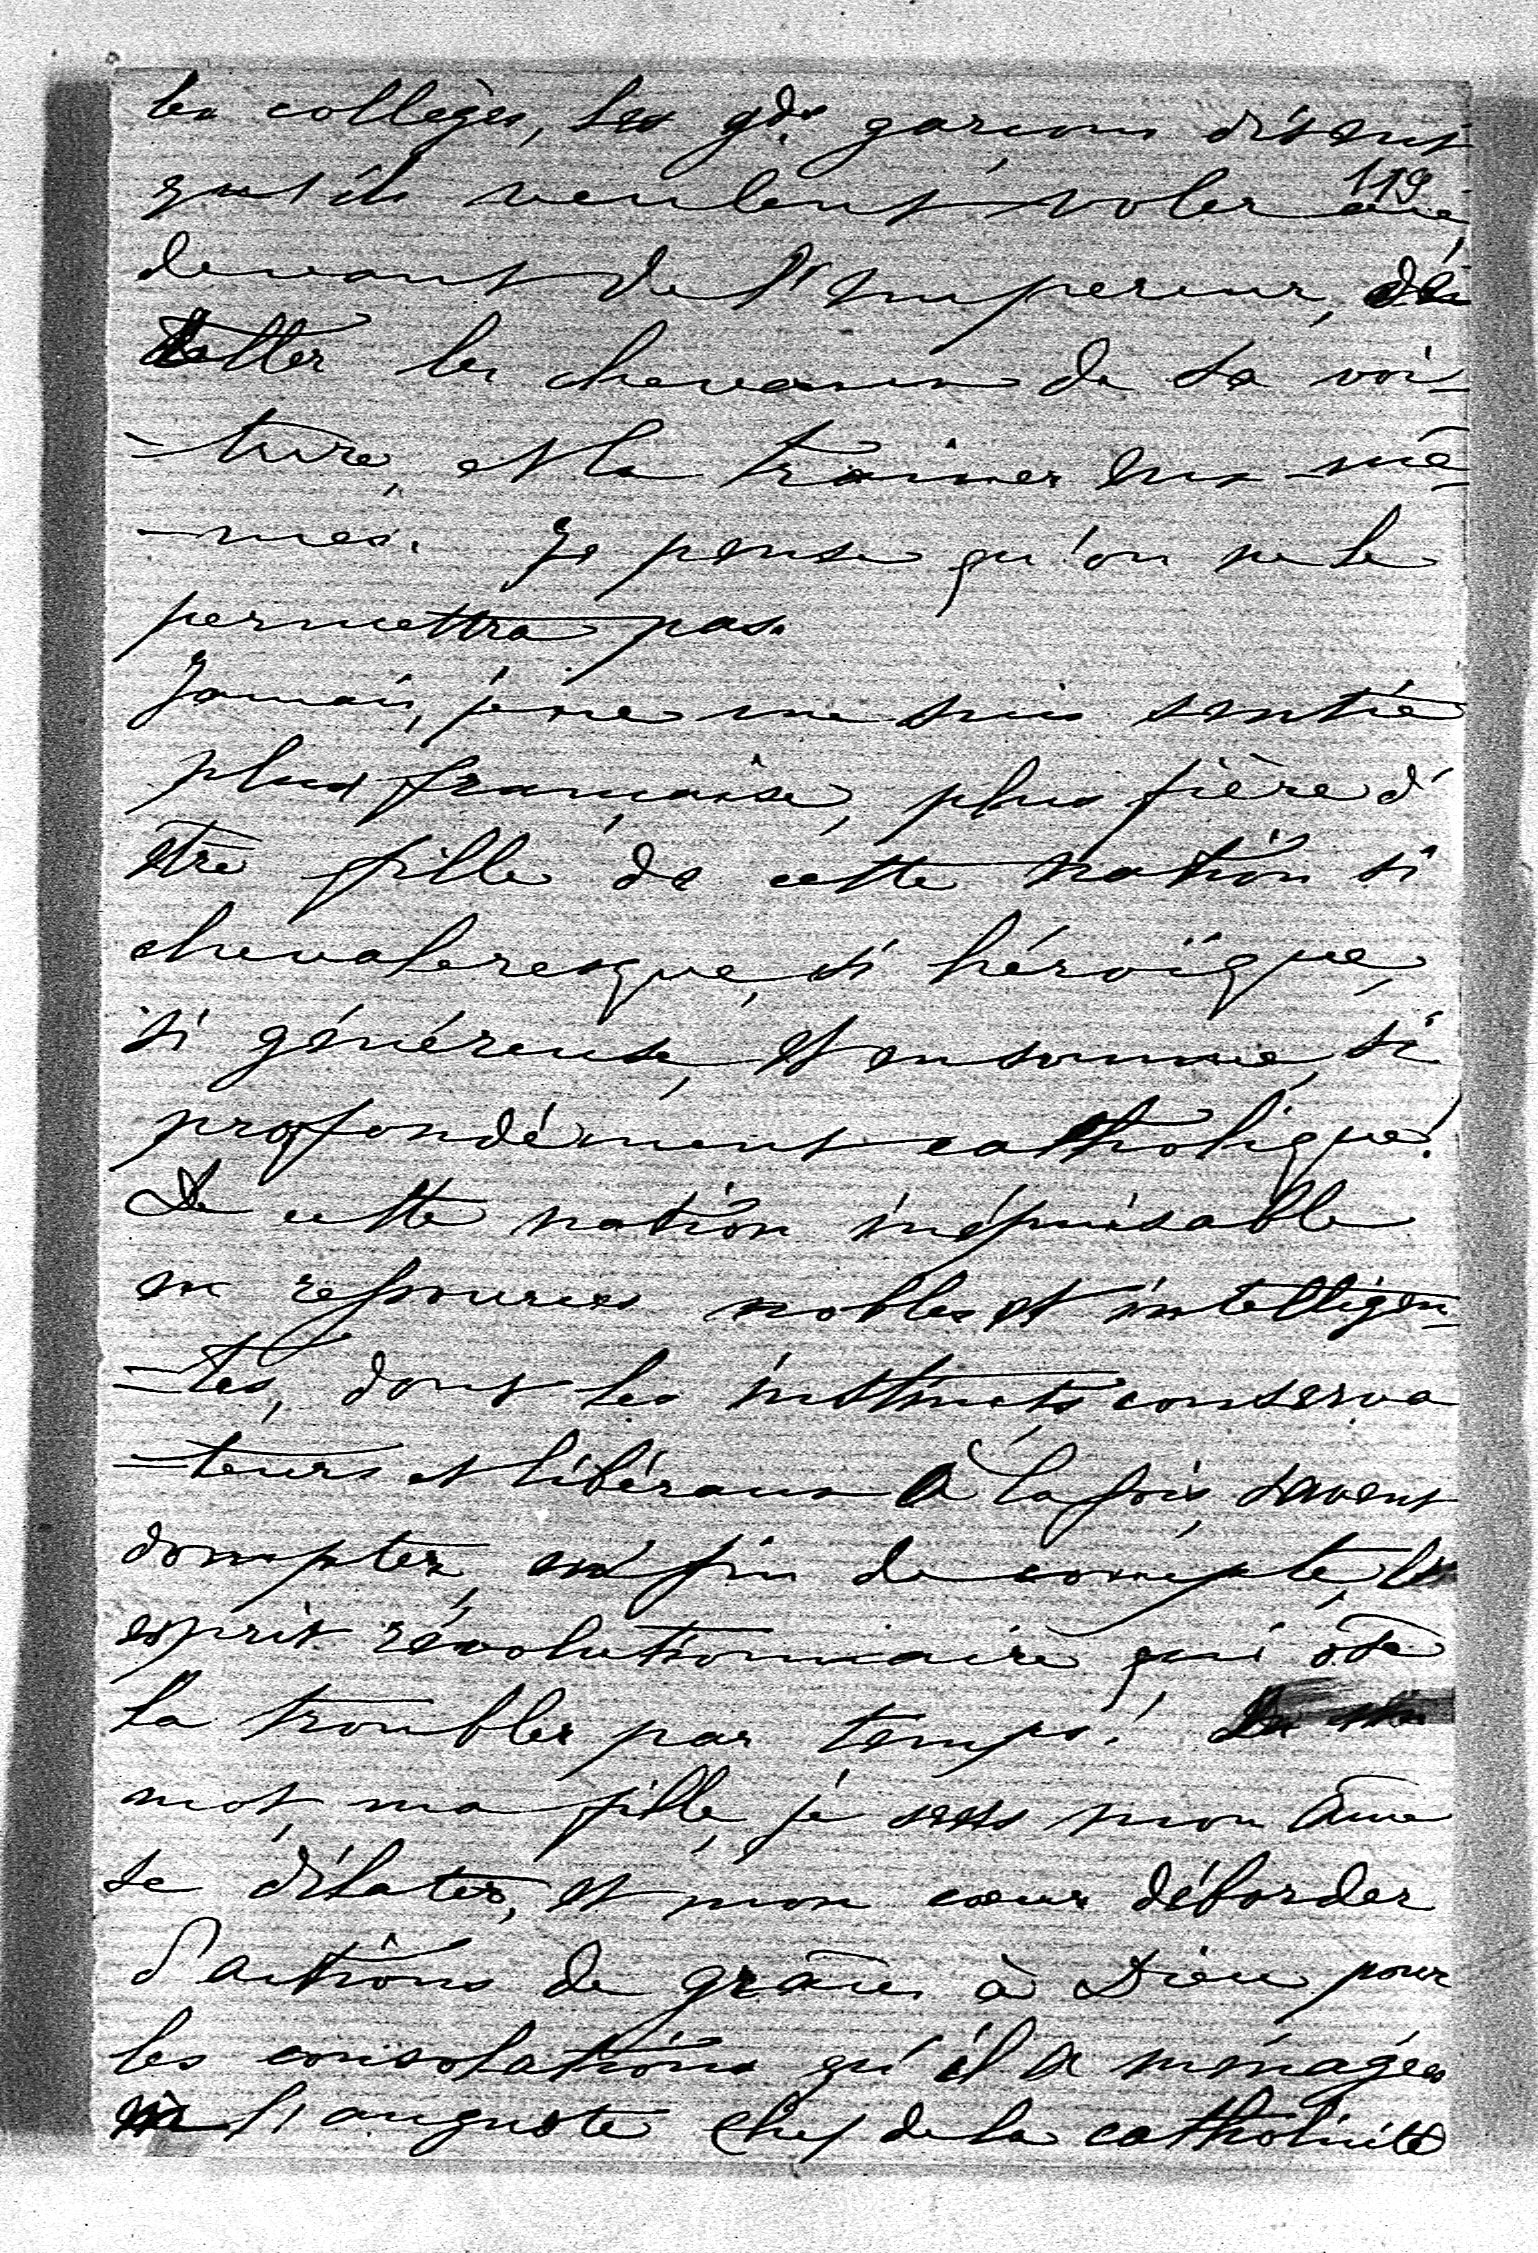 les collèges, les gds garçons disent
119
qu'ils veulent voler au
devant de l'Empereur, dé
tteler les chevaux de sa voi-
-ture, et la trainer eux mê-
-mes. Je pense qu'on ne le
permettra pas.
Jamais, je ne me suis sentie
plus française, plus fière d'
être fille de cette nation si
chevaleresque, si héroïque,
si généreuse, et en somme, si
profondément catholique!
De cette nation inépuisable
en ressources nobles et intelligen-
-tes, dont les instincts conserva
-teurs et libéraux à la fois, savent
dompter, en fin de compte, l'
esprit révolutionnaire qui ose
la troubler par temps!
mot, ma fille, je sens mon âme
se dilater, et mon cœur déborder
d'actions de grâces à Dieu pour
les consolations qu'il a ménagées
à l'auguste Chef de la catholicité